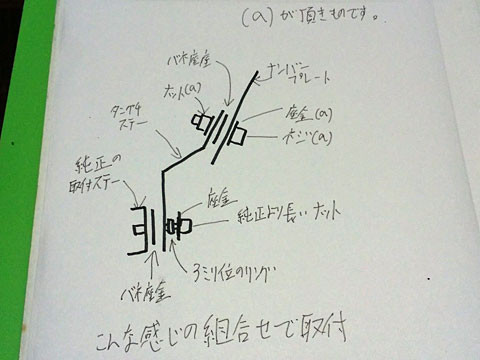 (a)が頂きものです。
バネ座金
ナンバー
プレート
ナット(a)
タンデム
ステー
座金(a)
ネジ(a)
純正の
取付ステー
座金
純正より長いナット
3ミリ位のリング
バネ座金
こんな感じの組合せで取付